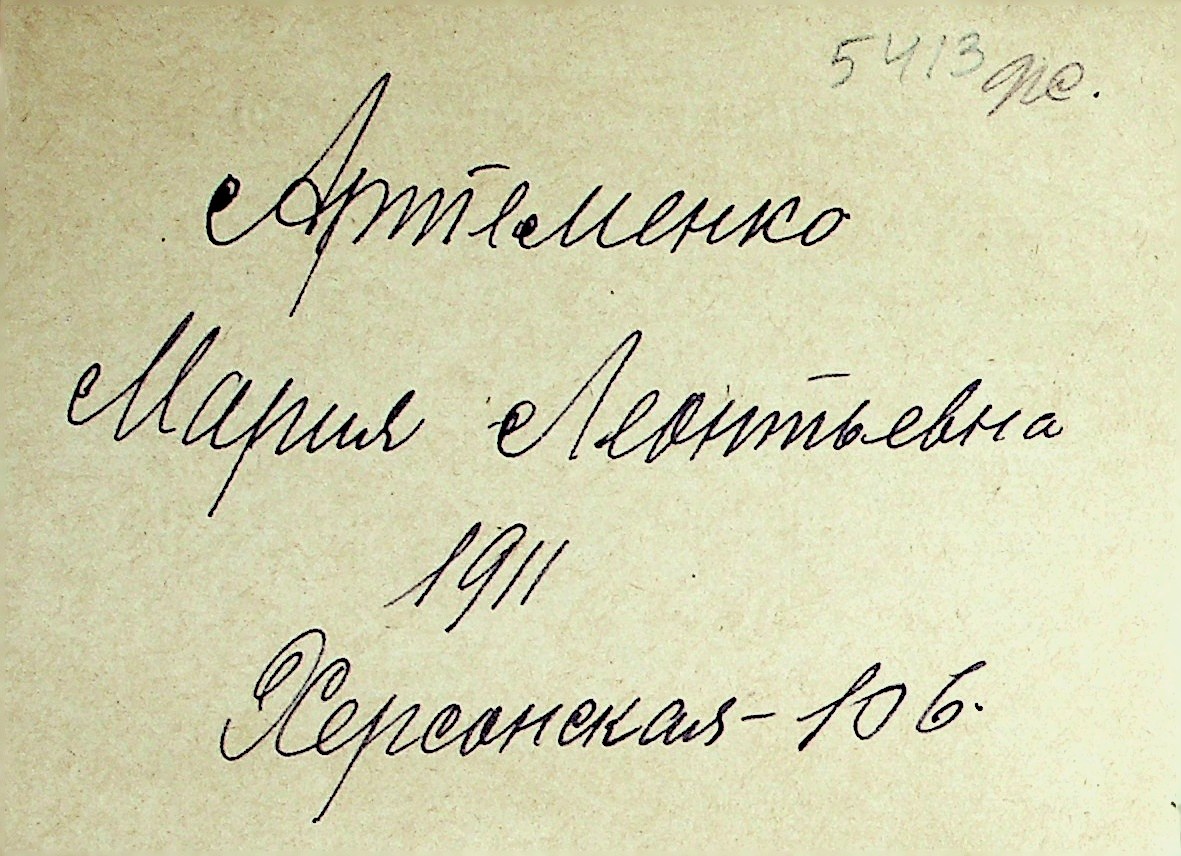 5413 рс.
Артеменко
Мария Леонтьевна
1911
Херсонская - 106.